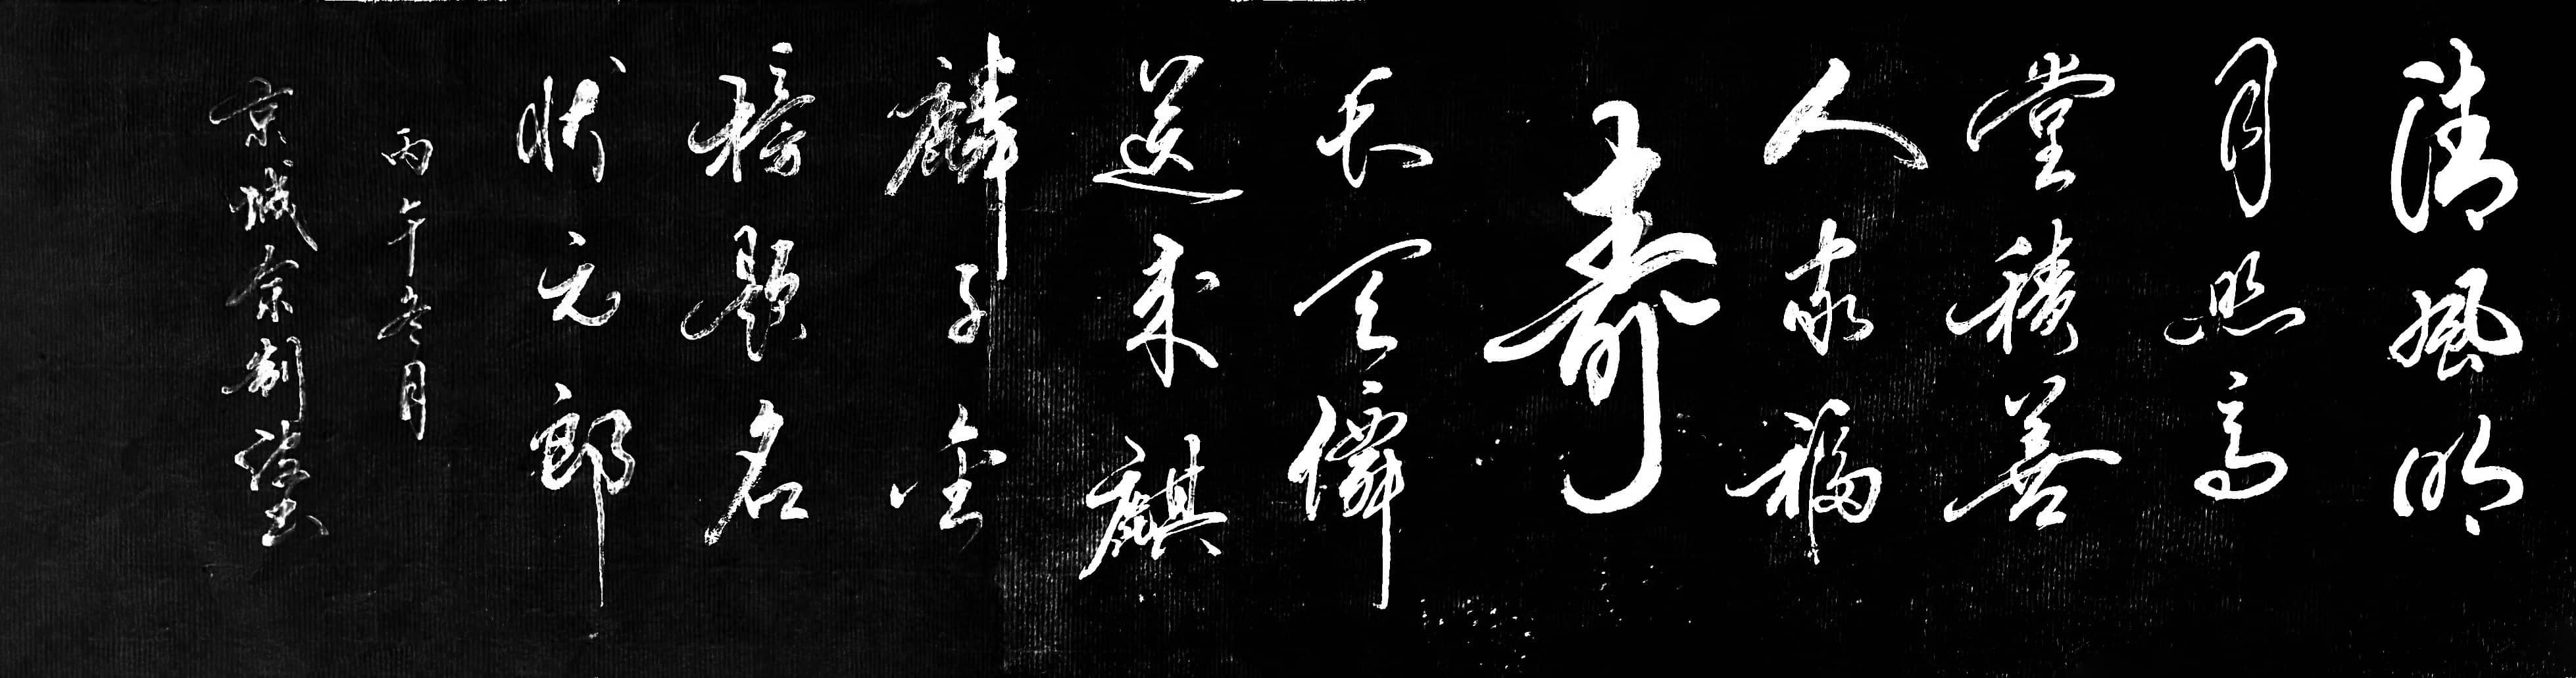 清風明
月照高
堂積善
人家福
壽
長天僊
送來麒
麟子金
榜題名
狀元郎
丙午冬月
京城